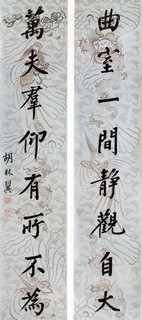 曲室一間静觀自大
萬夫羣仰有所不為
胡林翼